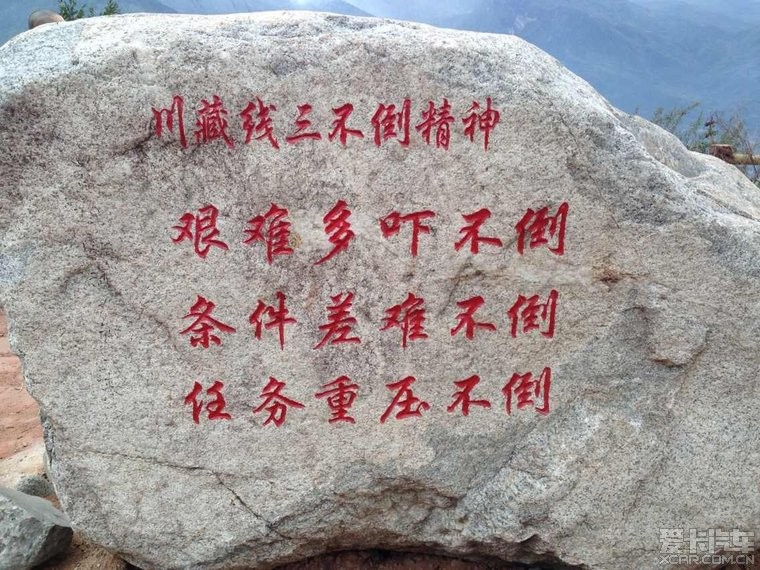 川藏线三不倒精神
艰难多吓不倒
条件差难不倒
任务重压不倒
爱卡汽车
XCAR.COM.CN